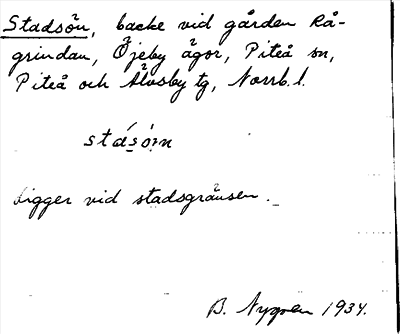 Stadsön, backe vid gården Rå-
grindan, Öjeby ägor, Piteå sn,
Piteå och Älvsby tg, Norrb. l.
stásò̀n
Ligger vid stadsgränsen.
B. Nygren 1934.